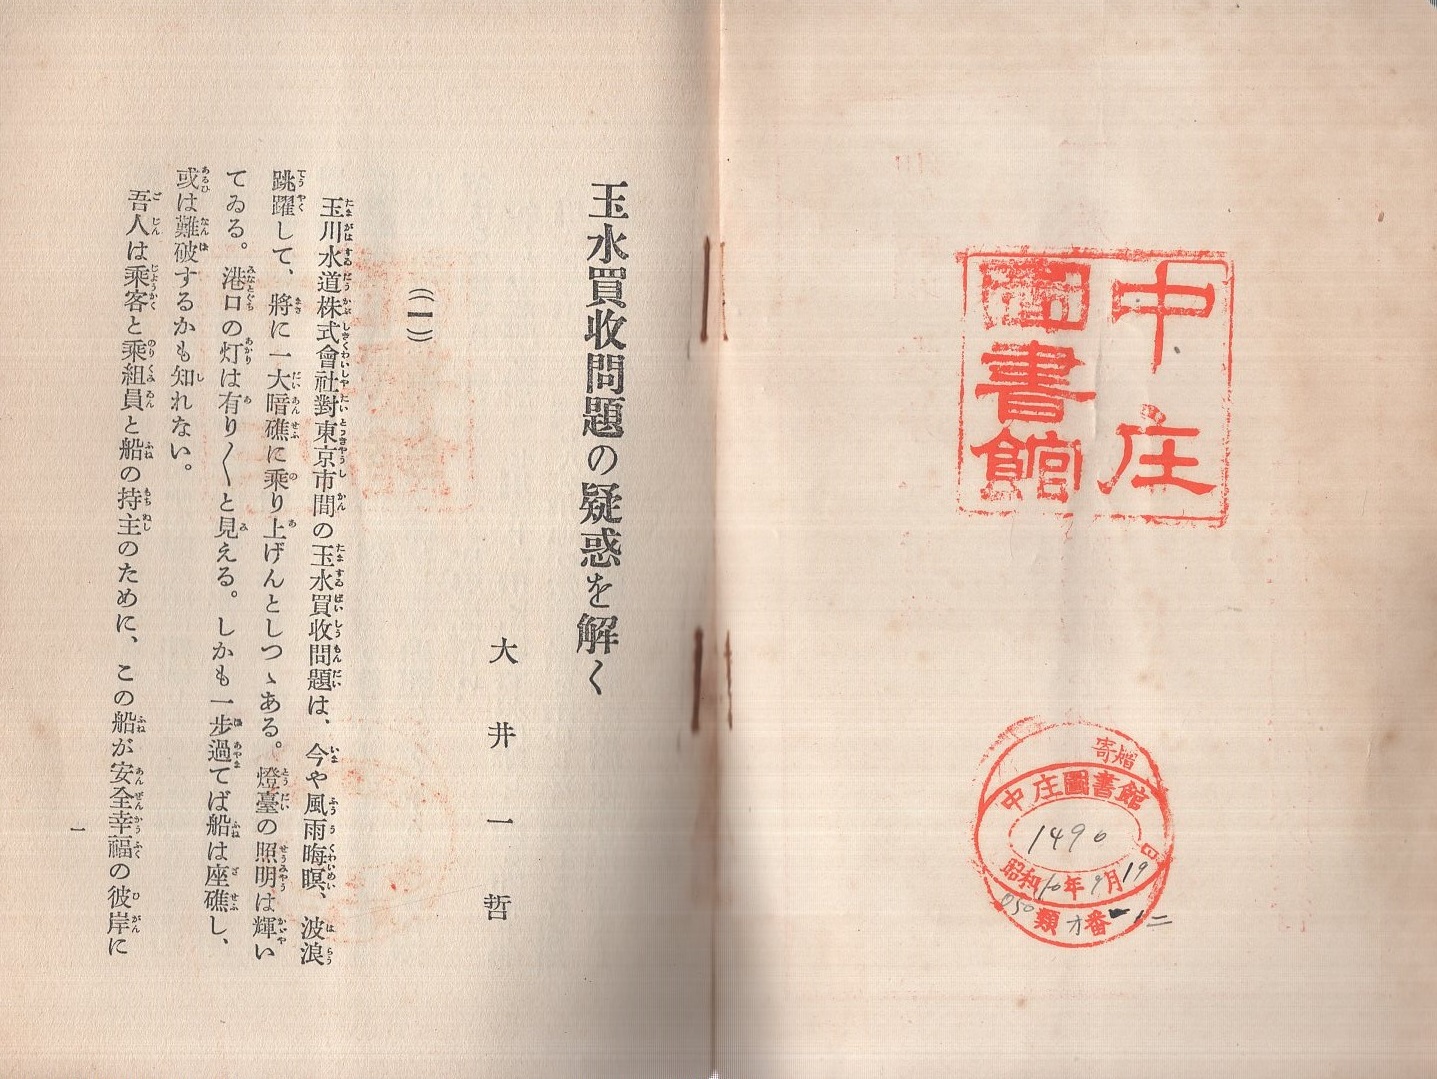 中庄
圖書館
寄
中庄圖書館
1490
昭和10年9月19日
050類
番
玉水買收問題の疑惑を解く
大井一哲
(一)
玉川水道株式會社對東京市間の玉水買收問題は、今や風雨晦瞑、波浪
跳躍して、將に一大暗礁に乘り上げんとしつゝある。燈臺の照明は輝い
てゐる。港口の灯は有り〱と見える。しかも一步過てば船は座礁し、
或は難破するかも知れない。
吾人は乘客と乘組員と船の持主のために、この船が安全幸福の彼岸に
一